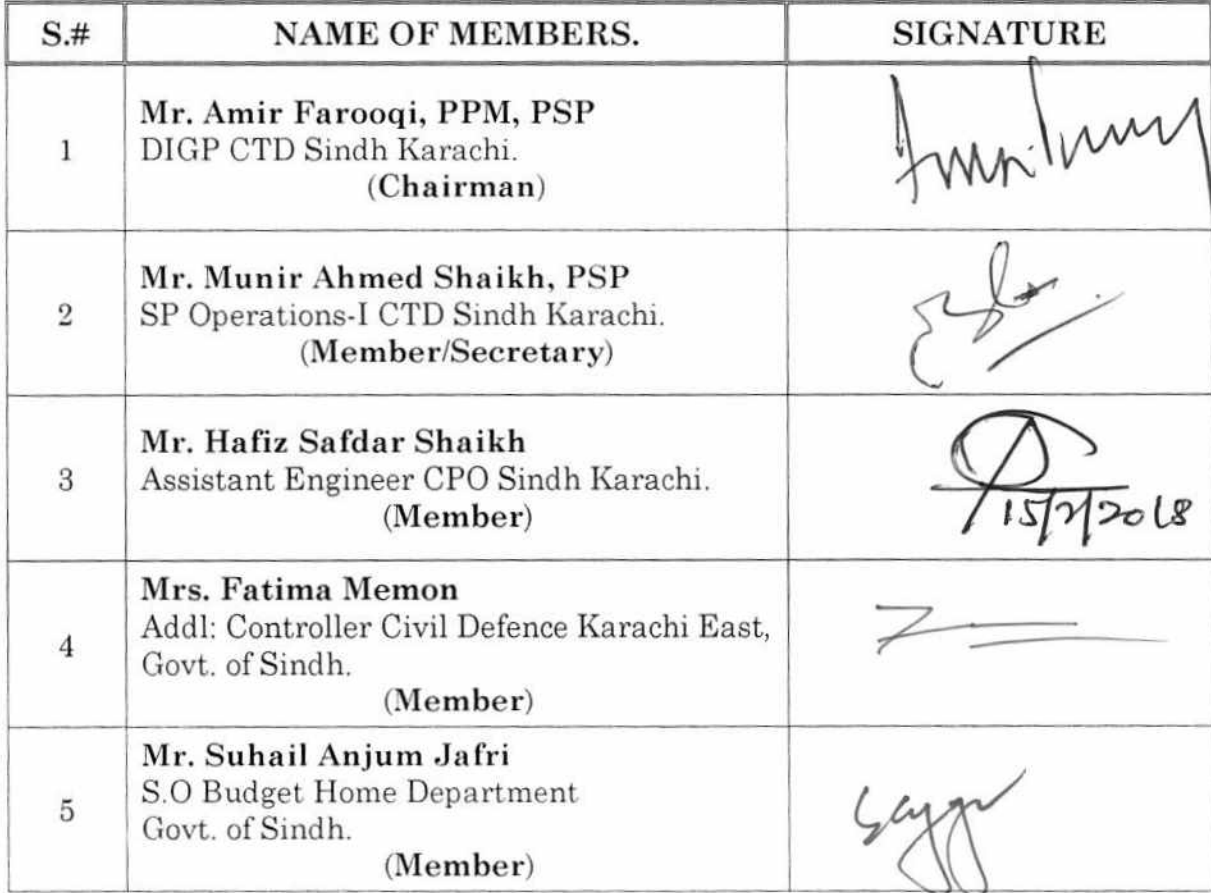 S.# NAME OF MEMBERS. SIGNATURE
1
Mr. Amir Farooqi, PPM, PSP
DIGP CTD Sindh Karachi.
(Chairman)
2
Mr. Munir Ahmed Shaikh, PSP
SP Operations-I CTD Sindh Karachi.
(Member/Secretary)
3
Mr. Hafiz Safdar Shaikh
Assistant Engineer CPO Sindh Karachi.
(Member)
15/2/2018
4
Mrs. Fatima Memon
Addl: Controller Civil Defence Karachi East,
Govt. of Sindh.
(Member)
5
Mr. Suhail Anjum Jafri
S.O Budget Home Department
Govt. of Sindh.
(Member)